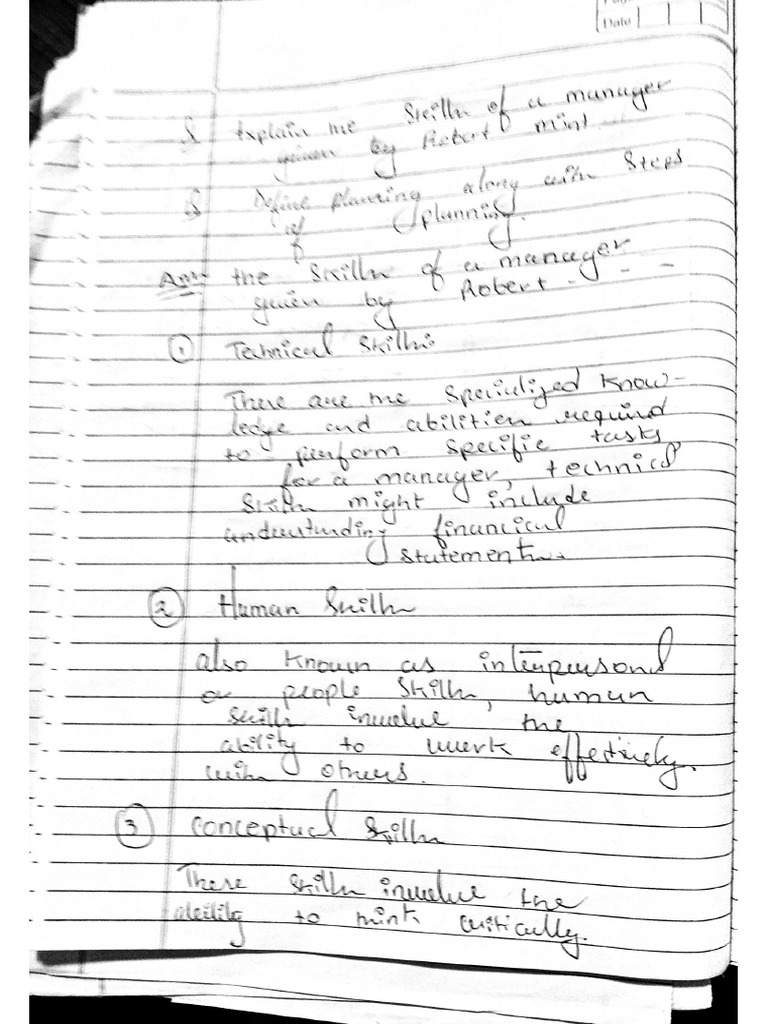 Date
Q Explain the skills of a manager
given by Robert mint.
Q Define planning along with steps
of planning.
Ans the skills of a manager
given by Robert - - -
① Technical Skills
These are the specialized know-
ledge and abilities required
to perform specific tasks
for a manager, technical
skills might include
understanding financial
statements.
② Human Skills
also known as interpersonal
or people skills, human
skills involve the
ability to work effectively
with others.
③ Conceptual Skills
These skills involve the
ability to think critically.